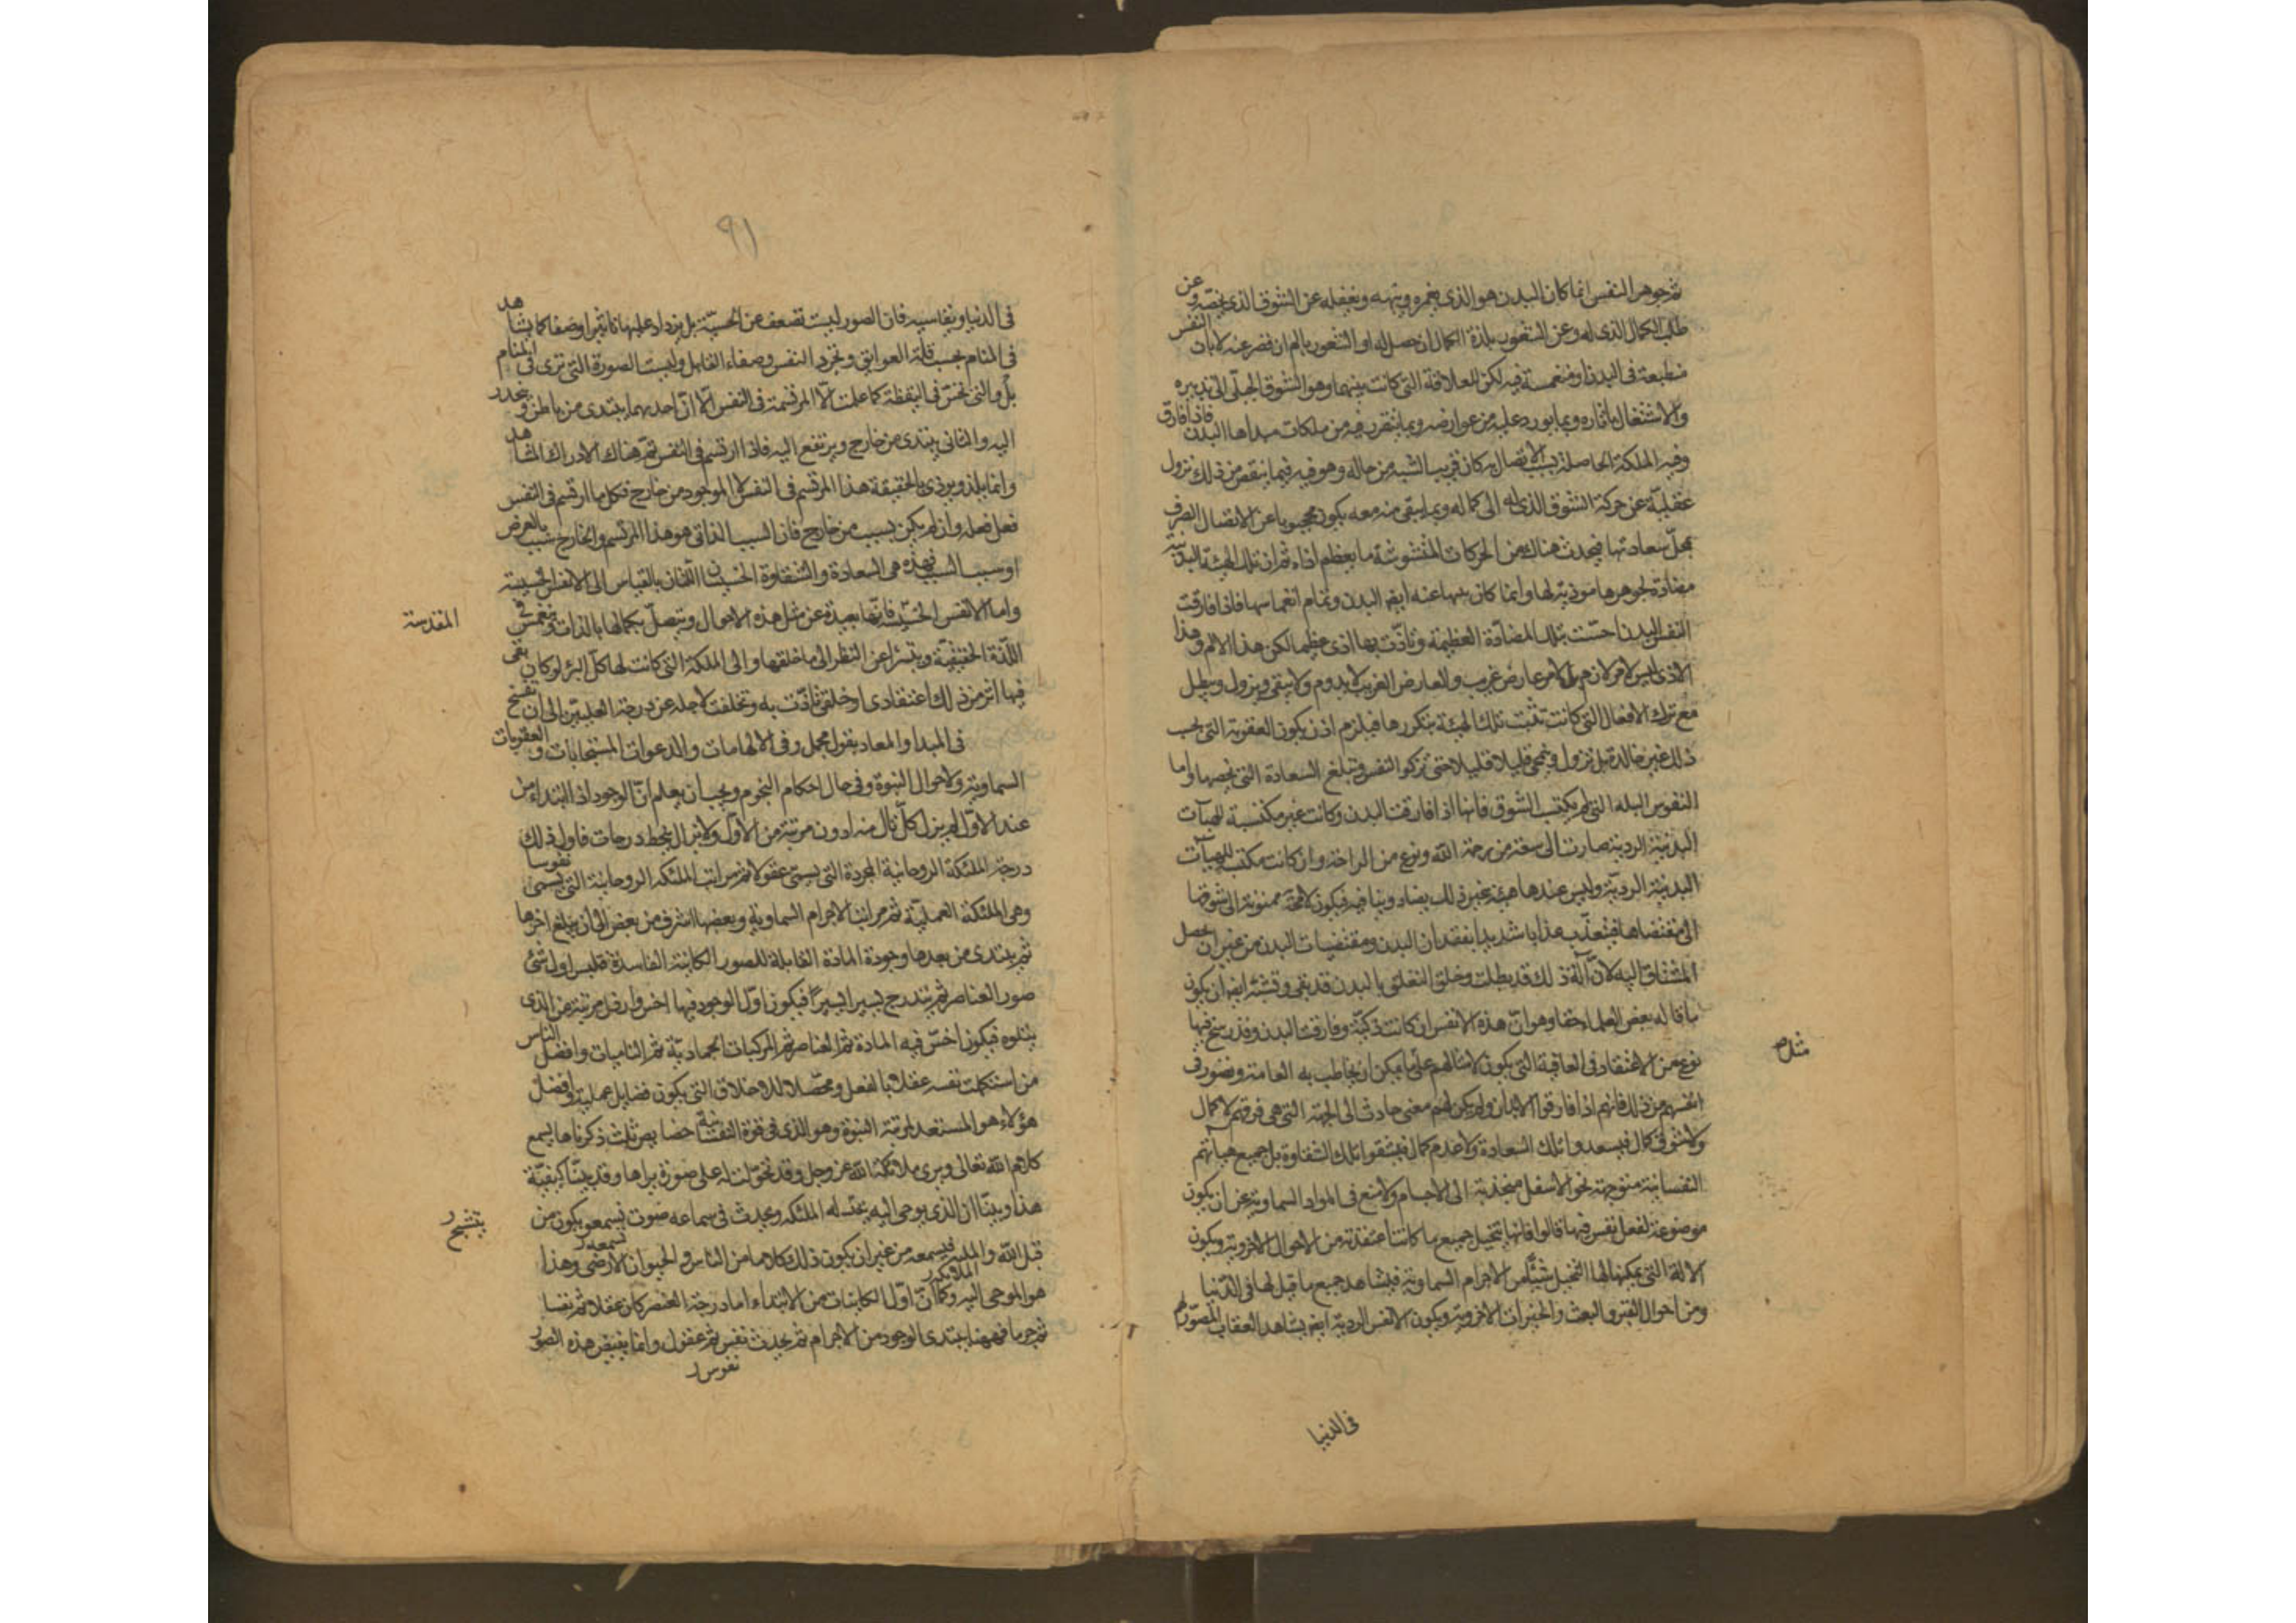 ثم جوهر النفس انما كان البدن هو الذى يغمره ويلهيه ويغفله عن الشوق الذى يخصه وعن
طلب الكمال الذى له وعن الشعور بلذة الكمال ان حصل له او الشعور بالم ان قصر عنه لا بان النفس
منطبعة فى البدن او منغمسة فيه لكن للعلاقة التى كانت بينهما وهو الشوق الجبلّى الى تدبيره
والاشتغال بآثاره وبما يورد عليه من عوارضه وبما يتقرر فيه من ملكات مبدأها البدن فاذا فارق
وفيه الملكة الحاصلة بسبب الاتصال به كان قريب الشبه من حاله وهو فيه فيما ينقص من ذلك تزول
غفلته عن حركة الشوق الذى له الى كماله وبما يبقى منه معه يكون محجوبا عن الاتصال الصرف
بمحلّ سعادتها فيحدث هناك من الحركات المشوشة ما يعظم اذاه ثم ان تلك الهيئة البدنية
مضادة لجوهرها موذية لها وانما كان يلهيها عنه ايضا البدن وتمام انغماسها فاذا فارقت
النفس البدن احسّت بتلك المضادّة العظيمة وتأذّت بها اذى عظيما لكن هذا الالم وهذا
الاذى ليس لامر لازم بل لامر عارض غريب والعارض الغريب لا يدوم ولا يبقى ويزول ويبطل
مع ترك الافعال التى كانت تثبت تلك الهيئة بتكررها فيلزم اذن ان يكون العقوبة التى بحسب
ذلك غير خالدة بل تزول وتمحى قليلا قليلا حتى تزكو النفس وتبلغ السعادة التى تخصها واما
النفوس البله التى لم يكتسب الشوق فانها اذا فارقت البدن وكانت غير مكتسبة للهيآت
البدنية الردية صارت الى سعة من رحمة الله ونوع من الراحة وان كانت مكتسبة للهيآت
البدنية الرديّة وليس عندها هيئة غير ذلك يضاده وينافيه فيكون لا محالة ممنوة الى شوقها
الى مقتضاها فيتعذّب عذابا شديدا بفقدان البدن ومقتضيات البدن من غير ان يحصل
المشتاق اليه لانّ آلة ذلك قد بطلت وخلق التعلق بالبدن قد بقى ويشبه ايضا ان يكون
ما قاله بعض العلماء حقا وهو انّ هذه الانفس ان كانت زكيّة وفارقت البدن وقد رسخ فيها
نوع من الاعتقاد فى العاقبة التى يكون لامثالهم على ما يمكن ان يخاطب به العامة وتصور فى
مثل م
انفسهم من ذلك فانهم اذا فارقوا الابدان ولم يكن لهم معنى جاذب الى الجهة التى هى فوقهم لا كمال
ولا شوق كمال فيسعدوا تلك السعادة ولا عدم كمال فيشقوا تلك الشقاوة بل جميع هيآتهم
النفسانية متوجهة نحو الاسفل منجذبة الى الاجسام ولا منع فى المواد السماوية عن ان يكون
موضوعة لفعل نفس فيها قالوا فانها تتخيل جميع ما كانت اعتقدته من الاحوال الاخروية ويكون
الآلة التى يمكنها لها التخيل شيئا من الاجرام السماوية فيشاهد جميع ما قيل لها فى الدنيا
ومن احوال القبر والبعث والخيرات الاخروية ويكون الانفس الردية ايضا يشاهد العقاب المصوّر لهم
فى الدنيا
٩١
فى الدنيا ويقاسيه فان الصور ليست تضعف عن الحسيّة بل يزداد عليها تاثيرا وصفا كما يشاهد
فى المنام بحسب قلّة العوائق وتجرد النفس وصفاء القابل وليست الصورة التى ترى فى المنام
بل والتى تحسّ فى اليقظة كما علمت الّا المرتسمة فى النفس الّا انّ احدهما يبتدى من باطن وينحدر
اليه والثانى يبتدى من خارج ويرتفع اليه فاذا ارتسم فى النفس تمّ هناك الادراك المشاهد
وانما يلذ ويوذى بالحقيقة هذا المرتسم فى النفس لا الموجود من خارج فكل ما ارتسم فى النفس
فعل فعله وان لم يكن بسبب من خارج فان السبب الذاتى هو هذا المرتسم والخارج سبب بالعرض
او سبب السبب فهذه هى السعادة والشقاوة الخسيستان اللتان بالقياس الى الانفس الخسيسة
واما الانفس الخسيسة فانّها بعيدة عن مثل هذه الاحوال ويتصلّ بكمالها بالذات وتنغمس فى
المقدسة
اللّذة الحقيقيّة ويتبرا عن النظر الى ما خلفها والى الملكة التى كانت لها كلّ التبرّ لو كان بقى
فيها اثر من ذلك اعتقادى او خلقى تأذّت به وتخلفت لاجله عن درجة العليّين الى ان يفسخ
فى المبدا والمعاد بقول مجمل وفى الالهامات والدعوات المستجابات والعقوبات
السماوية ولاحوال النبوة وفى حال احكام النجوم ويجب ان يعلم انّ الوجود اذا ابتداء من
عند الاوّل لم يزل كلّ تال منه ادون مرتبة من الاوّل ولا يزال ينحط درجات فاول ذلك
درجة الملئكة الروحانية المجردة التى يسمى عقولا ثم مراتب الملئكه الروحانية التى يسمى نفوسا
وهى الملئكة العمليّة ثم مراتب الاجرام السماوية وبعضها اشرف من بعض الى ان يبلغ اخرها
ثم يبتدى من بعدها وجودة المادة القابلة للصور الكاينة الفاسدة فتلبس اول شئ
صور العناصر ثم يتدرج يسيرا يسيرا فيكون اوّل الوجود فيها اخس وارذل مرتبة من الذى
يتلوه فيكون اخسّ فيه المادة ثم العناصر ثم المركبات الجماديّة ثم الناميات وافضل الناس
من استكملت نفسه عقلا بالفعل ومحصّلا للاخلاق التى يكون فضايل عملية وافضل
هؤلاء هو المستعد لمرتبة النبوة وهو الذى فى قوة النفسانية خصايص ثلث ذكرناها يسمع
كلام الله تعالى ويرى ملائكة الله عز وجل وقد تحوّلت له على صورة يراها وقد بيّنّا كيفيّة
هذا وبيّنّا ان الذى يوحى اليه يتمثل له الملئكه ويحدث فى سماعه صوت يسمعه يكون من
يتشبح ر
قبل الله والملئكة فيسمعه من غير ان يكون ذلك كلاما من الناس والحيوان الارضى وهذا
هو الموحى اليه وكما انّ اوّل الكاينات من الابتداء اما درجة العنصر كان عقلا ثم نفسا
ثم جرما فههنا يبتدى الوجود من الاجرام ثم يحدث نفس ثم عقول وانما يفيض هذه الصور
نفوس ر